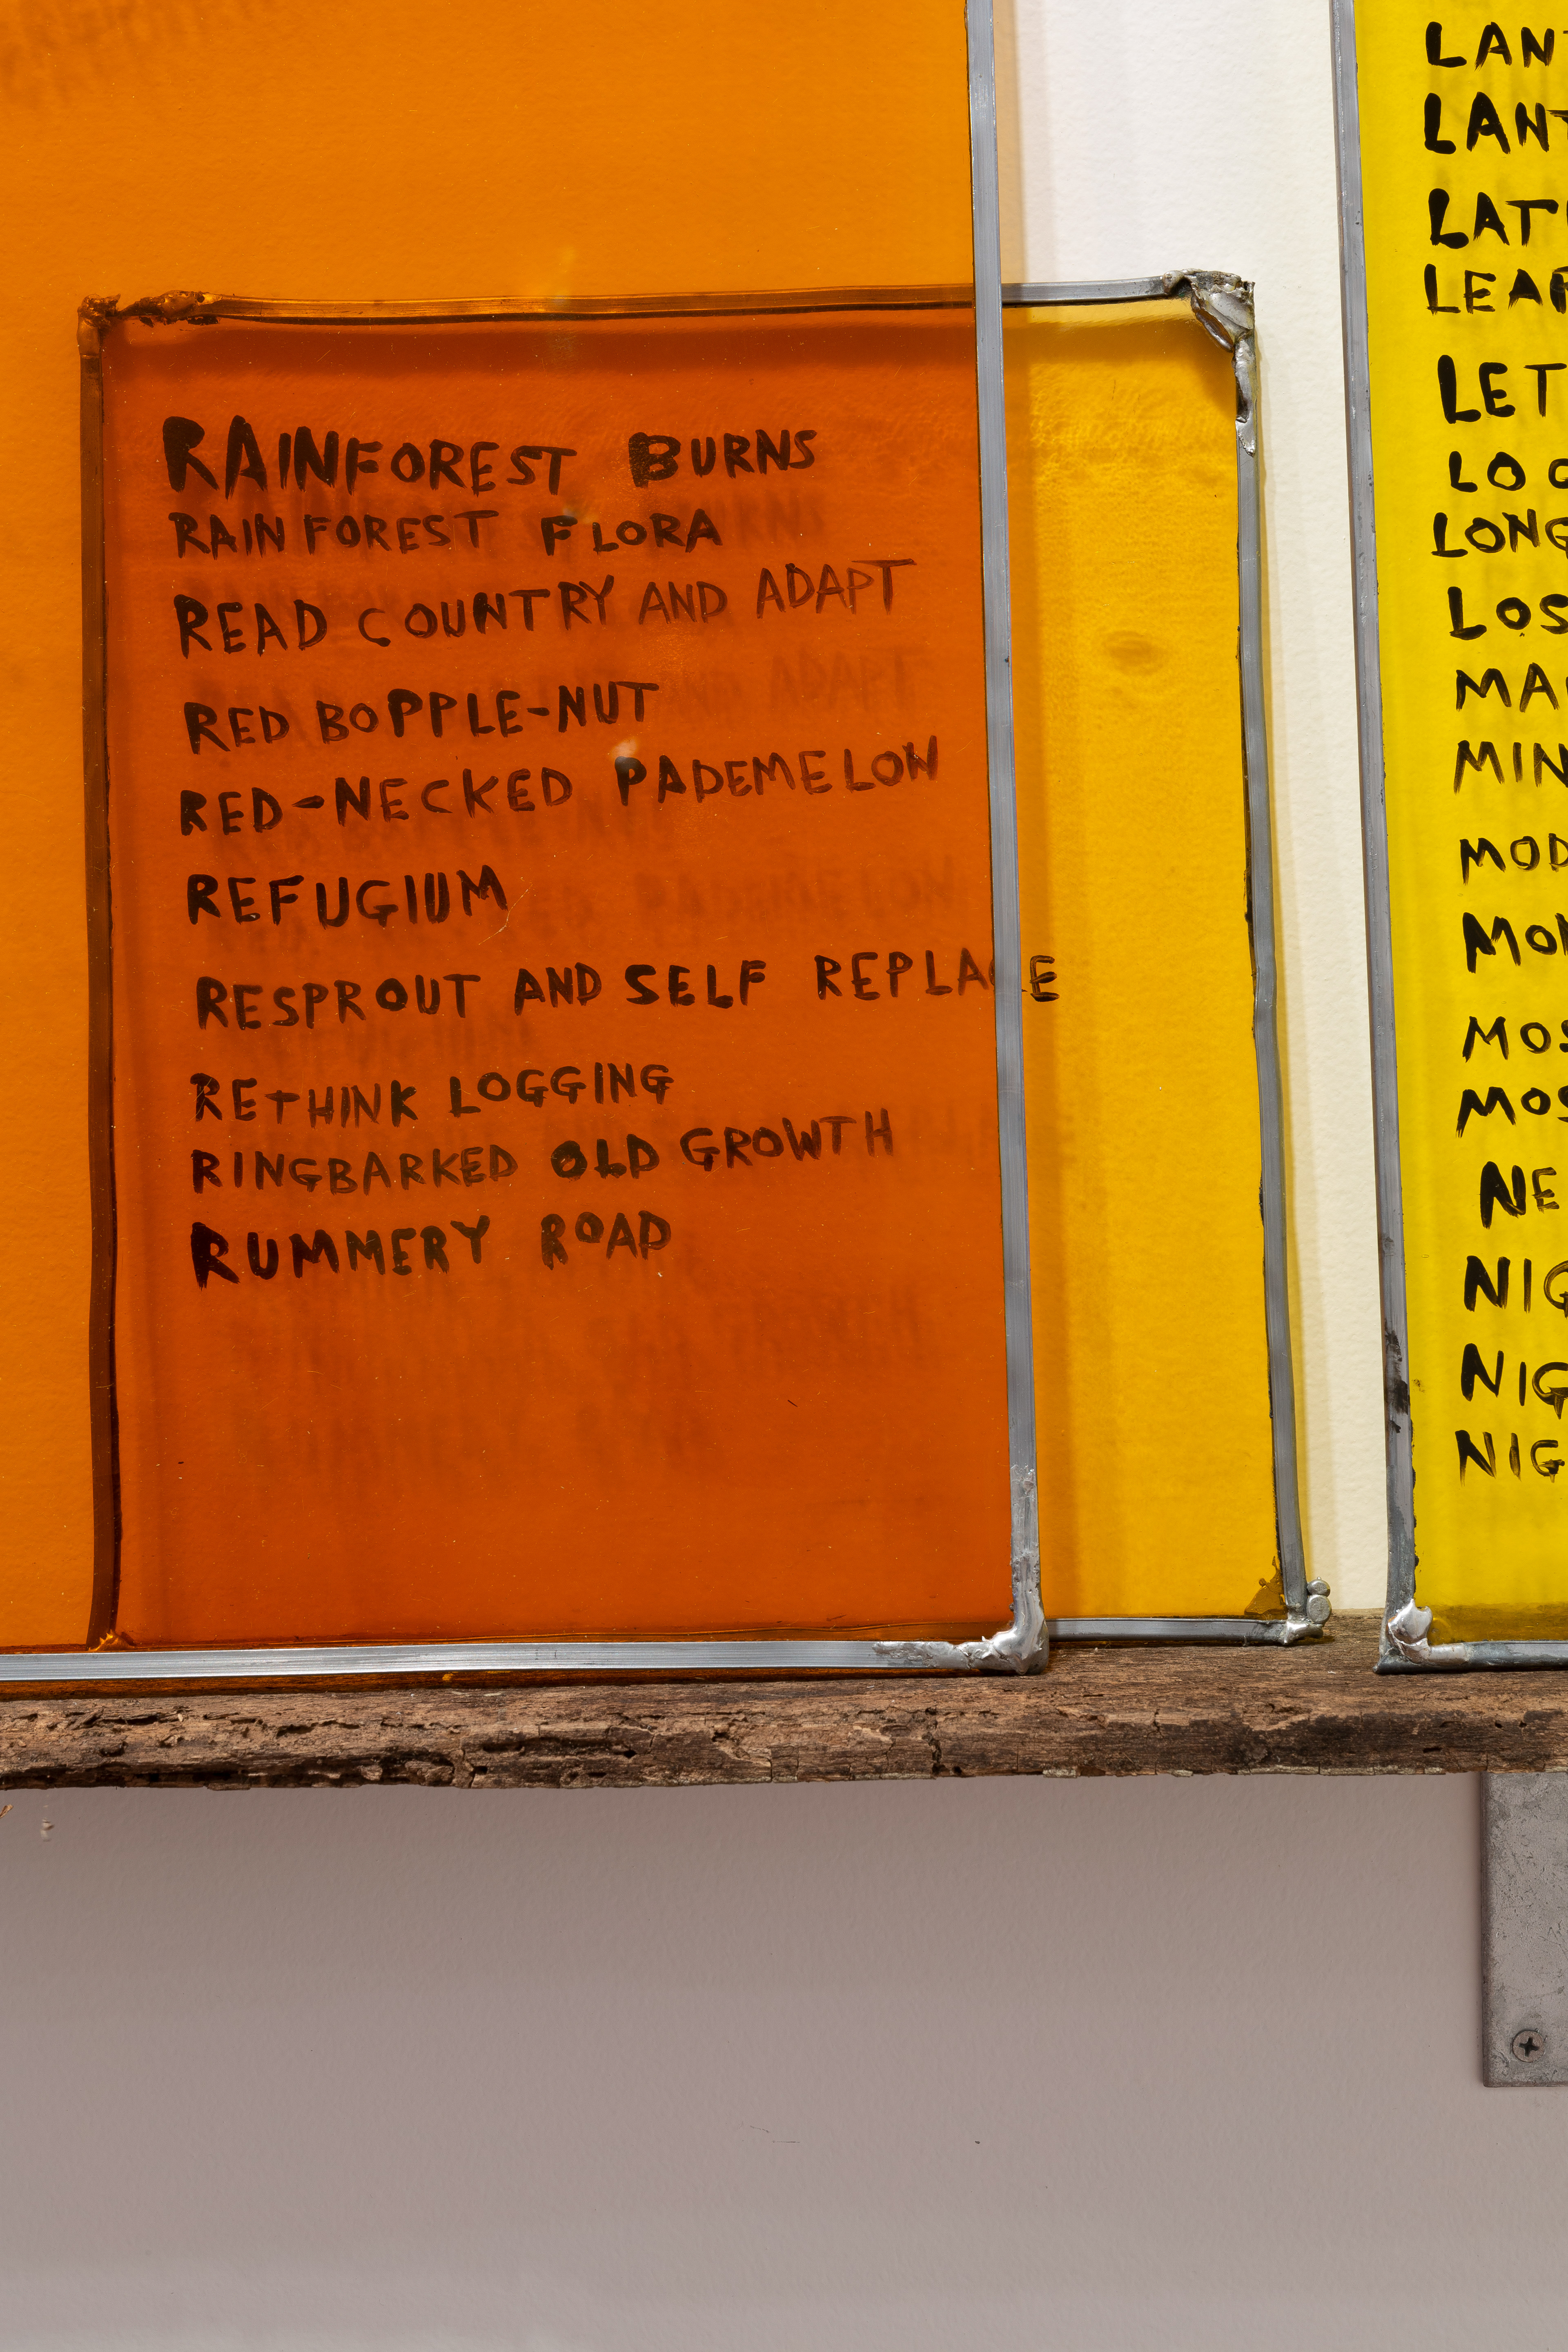 RAINFOREST BURNS
RAINFOREST FLORA
READ COUNTRY AND ADAPT
RED BOPPLE-NUT
RED-NECKED PADEMELON
REFUGIUM
RESPROUT AND SELF REPLACE
RETHINK LOGGING
RINGBARKED OLD GROWTH
RUMMERY ROAD
LAN
LANT
LAT
LEAF
LET
LONG
LOS
MA
MIN
MOD
MOS
MOS
NE
NIG
NIG
NIG